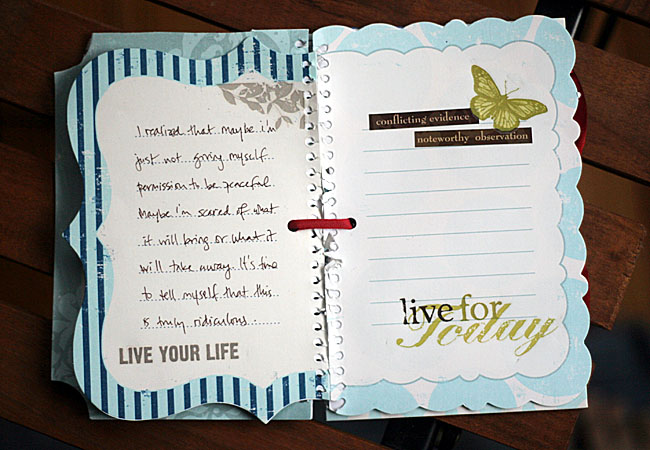 I realized that maybe i'm
just not giving myself
permission to be peaceful.
Maybe I'm scared of what
it will bring or what it
will take away. It's time
to tell myself that this
is truly ridiculous.......
LIVE YOUR LIFE
conflicting evidence
noteworthy observation
live for
Today